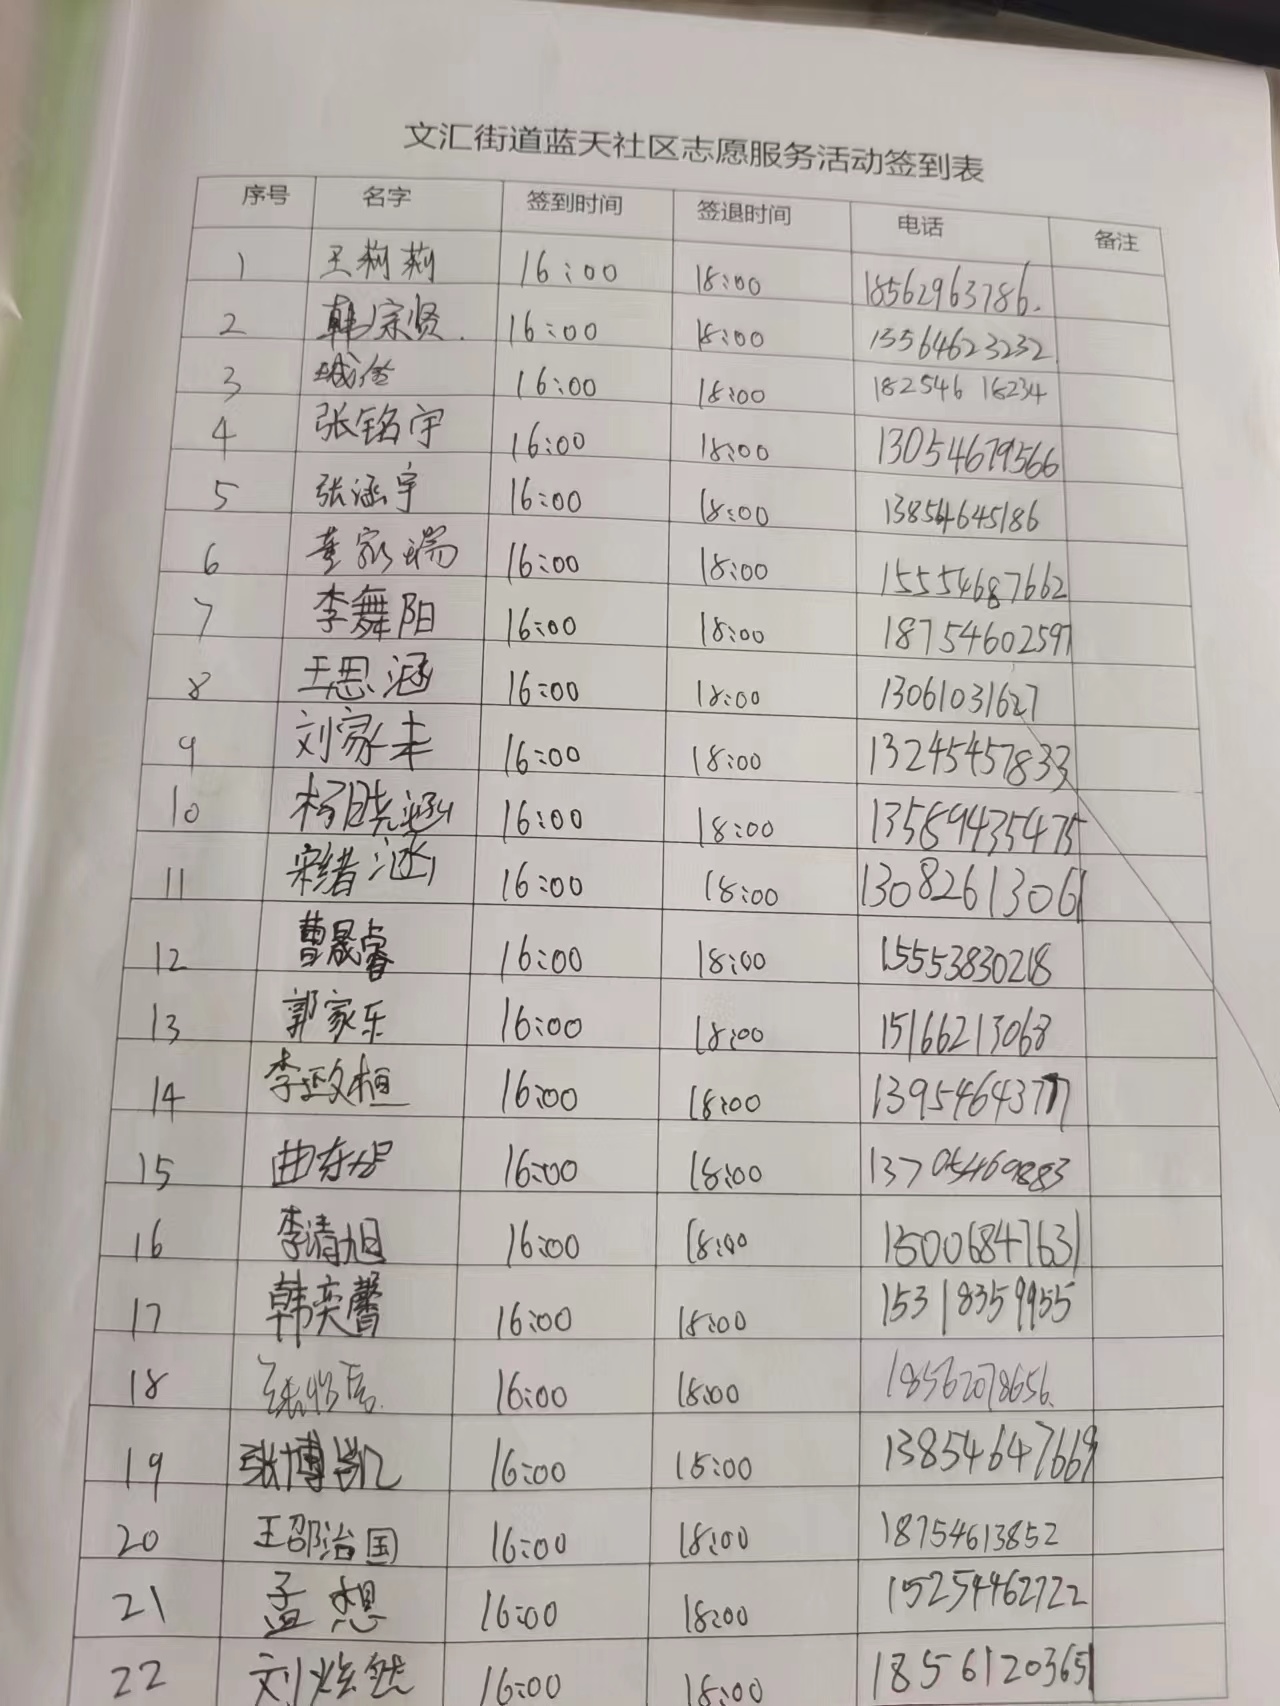 文汇街道蓝天社区志愿服务活动签到表
序号 名字 签到时间 签退时间 电话 备注
1 王莉莉 16:00 18:00 18562963786.
2 韩宗贤. 16:00 18:00 13564623232
3 16:00 18:00 182546 18234
4 张铭宇 16:00 18:00 13054679566
5 张涵宇 16:00 18:00 13854645186
6 董家瑞 16:00 18:00 15554687662
7 李舞阳 16:00 18:00 18754602597
8 王思涵 16:00 18:00 13061031627
9 刘家丰 16:00 18:00 13245457833
10 杨晓涵 16:00 18:00 13589435475
11 宋绪涵 16:00 18:00 13082613061
12 曹晟睿 16:00 18:00 15553830218
13 郭家乐 16:00 18:00 15166213068
14 李政桓 16:00 18:00 13954643777
15 16:00 18:00 13705469883
16 李清旭 16:00 18:00 15006847631
17 韩奕馨 16:00 18:00 15318359955
18 16:00 18:00 18562078656.
19 张博凯 16:00 18:00 13854647669
20 王邵治国 16:00 18:00 18754613852
21 孟想 16:00 18:00 15254462722
22 刘炫然 16:00 18:00 18561203651